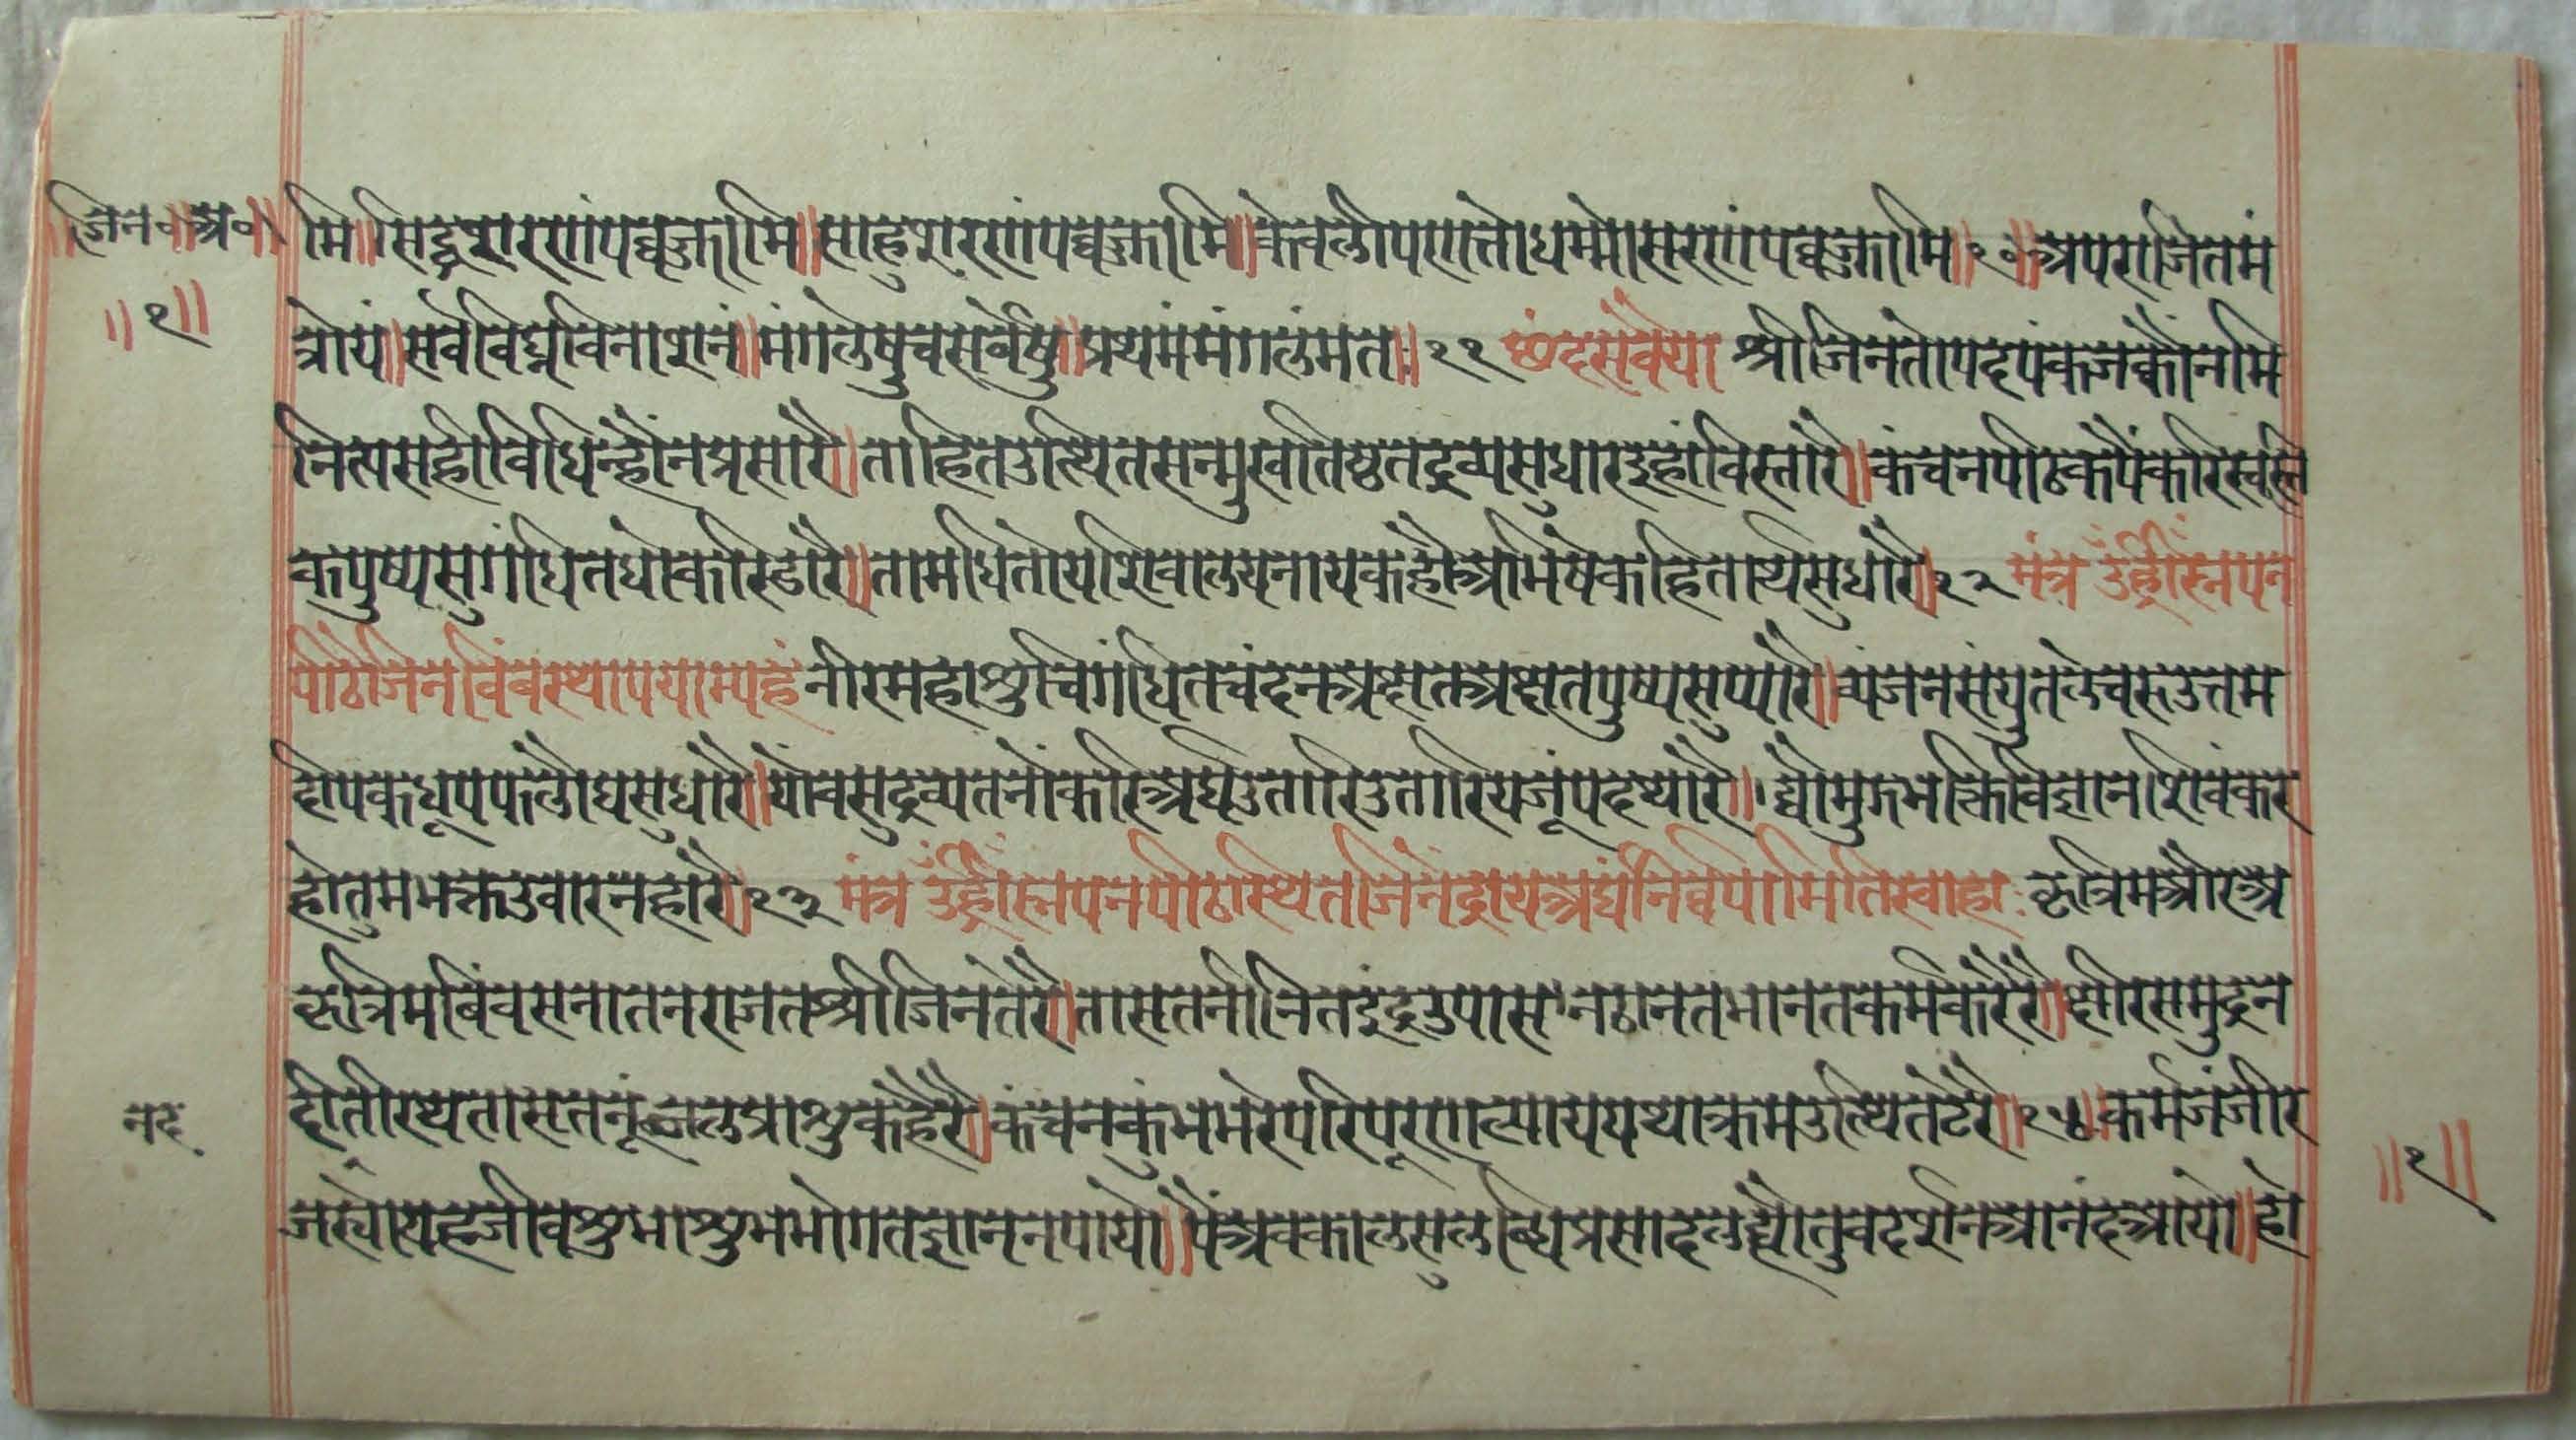 जिन०॥अ०॥
॥१॥
मि॥सिद्धशरणंपव्वज्जामि॥साहूशरणंपव्वज्जामि॥केवलीपणत्तोधम्मोसरणंपव्वज्जामि॥१०॥अपराजितमं
त्रोयं॥सर्वविघ्नविनाशनं॥मंगलेषुचसर्वेषु॥प्रथमंमंगलंमत॥११ छंदसवैया श्रीजिनंतोपदपंकजकौंनमि
नित्यसहीविधिन्हौंनप्रसारै॥ताहितउत्थितसन्मुखतिष्ठतद्रव्यसुधारइहांविस्तारै॥कंचनपीठकपैंकरिस्वस्ति
कपुष्पसुगंधितधोकरिडारै॥तामधितोयशिवालयनायकहौअभिषेकहितार्थसुधारै॥१२ मंत्र उँह्रींस्नपन
पीठेजिनबिंबस्थापयाम्यहं नीरमहाशुचिगंधितचंदनअक्षतअक्षतपुष्पसुप्यारै॥व्यंजनसंयुतलेचरूउत्तम
दीपकधूपफलौघसुधारै॥योवसुद्रव्यतनोंकरिअर्घउतारिउतारियजूंपदथ्यारै॥द्यौमुझभक्तिविज्ञानशिवंकर
होतुमभक्तउवारनहारै॥१३ मंत्र उँह्रींस्नपनपीठास्थितजिनेंद्रायअर्घंनिर्व्वपामितिस्वाहा: कृत्रिमऔरअ
कृत्रिमबिंबसनातनराजतश्रीजिनतेरै॥तासतनीनितइंद्रउपासनठानतभानतकर्मकरेरै॥क्षीरसमुद्रन
दीतीरथेतासतनूंजलप्राशुकहैरै॥कंचनकुंभभरेपरिपूरणल्यायययथाक्रमउत्थितटेरै॥१४॥कर्मजंजीर
नद
जर्‍योयहजीवशुभाशुभभोगतज्ञाननपायो॥पैंअवकालसुलब्धिप्रसादलह्यौतुवदर्शनआनंदआयो॥हो
॥१॥